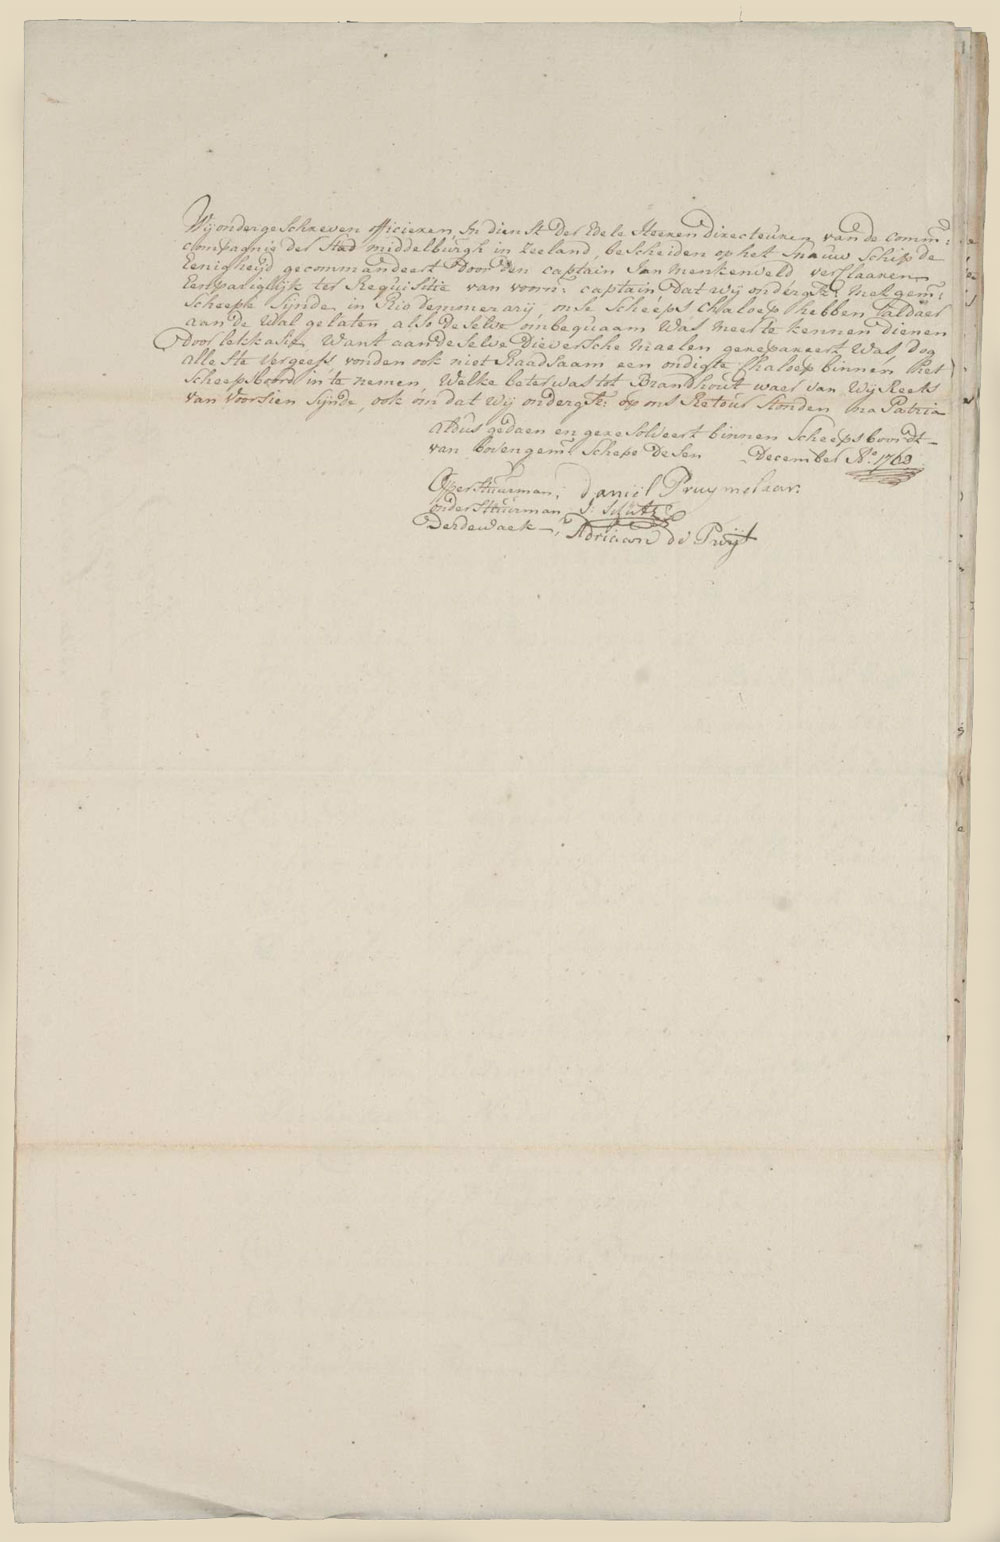 Wij ondergeschreven officieren, In dienst Der Edele Heeren Directeuren van de Comm:
Compagnie der Stad middelburgh in Zeeland, bescheiden op het Snauw Schip de
Eenigheijd gecommandeert Door Den captain Jan Menkenveld verklaaren
Eenpariglijk ter Requisitie van voorn: captain Dat wij ondergete: met gem:
Scheepe Sijnde in Rio Demmerarij, onse Scheeps Chaloep hebben aldaer
aan de Wal gelaten, also Deselve onbequaam Was meer te kennen dienen
Door lekkasie, Want aan deselve Dieversche maelen gerepareert Was, Dog
alles te vergeefs vonden ook niet Raadsaam een ondigte Chaloep binnen het
Scheepsboord in te nemen, Welke beter was tot Brandhout waer van Wij Reets
van voorsien Sijnde, ook om dat Wij ondergete: op ons Retour Stonden na Patria
aldus gedaen en geresolveert binnen Scheeps boordt
van bovengem: Schepe Desen December Ao. 1769
Opperstuurman; daniël Pruijmelaar:
onderstuurman
Derdewaek Adriaan de